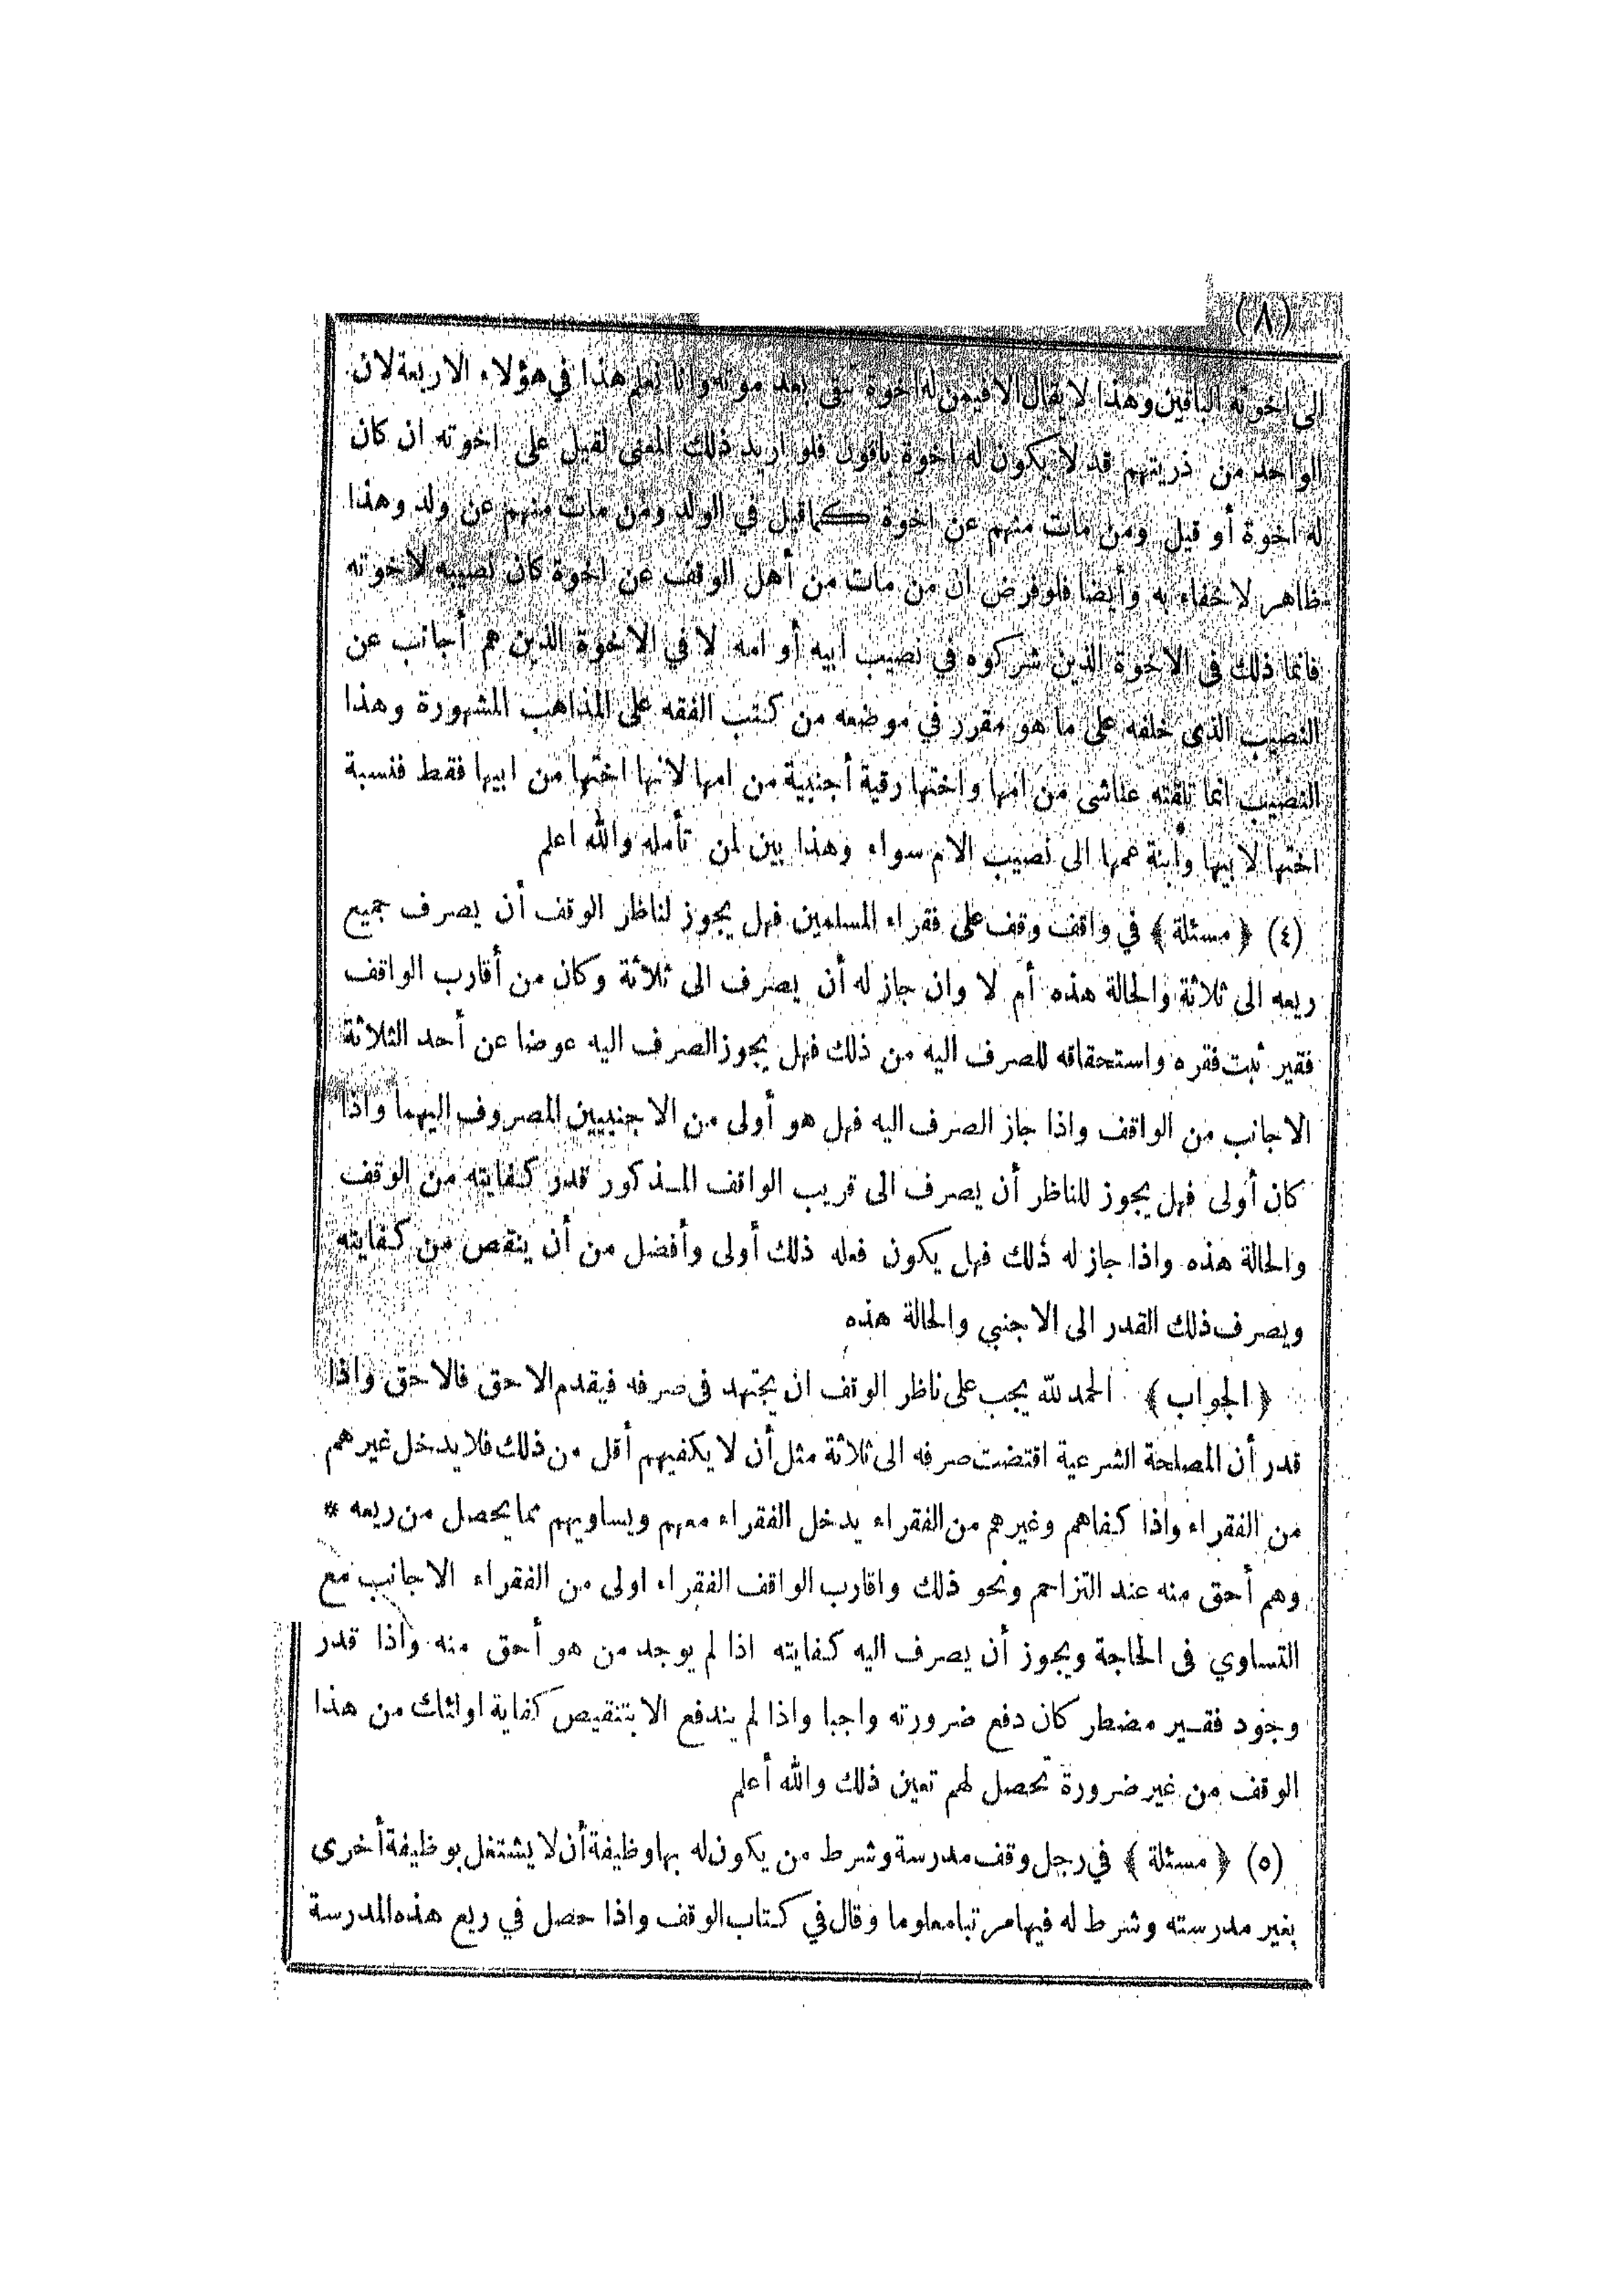 (٨)
الى اخوته الباقين وهذا لا يقال الا فيمن له اخوة تبقى بعد موته وانا نعلم هذا في هؤلاء الاربعة لان
الواحد من ذريتهم قد لا يكون له اخوة باقون فلو اريد ذلك المعنى لقيل على اخوته ان كان
له اخوة أو قيل ومن مات منهم عن اخوة كما قيل في الولد ومن مات منهم عن ولد وهذا
ظاهر لا خفاء به وأيضا فلو فرض ان من مات من أهل الوقف عن اخوة كان نصيبه لاخوته
فانما ذلك فى الاخوة الذين شركوه في نصيب ابيه أو امه لا في الاخوة الذين هم أجانب عن
النصيب الذى خلفه على ما هو مقرر في موضعه من كتب الفقه على المذاهب المشهورة وهذا
النصيب انما تلقته عناشى من امها واختها رقية أجنبية من امها لانها اختها من ابيها فقط فنسبة
اختها لابيها وابنة عمها الى نصيب الام سواء وهذا بين لمن تأمله والله اعلم
(٤) ﴿ مسئلة ﴾ في واقف وقف على فقراء المسلمين فهل يجوز لناظر الوقف أن يصرف جميع
ريعه الى ثلاثة والحالة هذه أم لا وان جاز له أن يصرف الى ثلاثة وكان من أقارب الواقف
فقير ثبت فقره واستحقاقه للصرف اليه من ذلك فهل يجوز الصرف اليه عوضا عن أحد الثلاثة
الاجانب من الواقف واذا جاز الصرف اليه فهل هو أولى من الاجنبيين المصروف اليهما واذا
كان أولى فهل يجوز للناظر أن يصرف الى قريب الواقف المذكور قدر كفايته من الوقف
والحالة هذه واذا جاز له ذلك فهل يكون فعله ذلك أولى وأفضل من أن ينقص من كفايته
ويصرف ذلك القدر الى الاجنبي والحالة هذه
﴿ الجواب ﴾ الحمد لله يجب على ناظر الوقف ان يجتهد فى صرفه فيقدم الاحق فالاحق واذا
قدر أن المصلحة الشرعية اقتضت صرفه الى ثلاثة مثل أن لا يكفيهم أقل من ذلك فلا يدخل غيرهم
من الفقراء واذا كفاهم وغيرهم من الفقراء يدخل الفقراء معهم ويساويهم مما يحصل من ريعه *
وهم أحق منه عند التزاحم ونحو ذلك واقارب الواقف الفقراء اولى من الفقراء الاجانب مع
التساوي فى الحاجة ويجوز أن يصرف اليه كفايته اذا لم يوجد من هو أحق منه واذا قدر
وجود فقير مضطر كان دفع ضرورته واجبا واذا لم يندفع الا بتنقيص كفاية اولئك من هذا
الوقف من غير ضرورة تحصل لهم تعين ذلك والله أعلم
(٥) ﴿ مسئلة ﴾ في رجل وقف مدرسة وشرط من يكون له بها وظيفة أن لا يشتغل بوظيفة أخرى
بغير مدرسته وشرط له فيها مرتبا معلوما وقال في كتاب الوقف واذا حصل في ريع هذه المدرسة